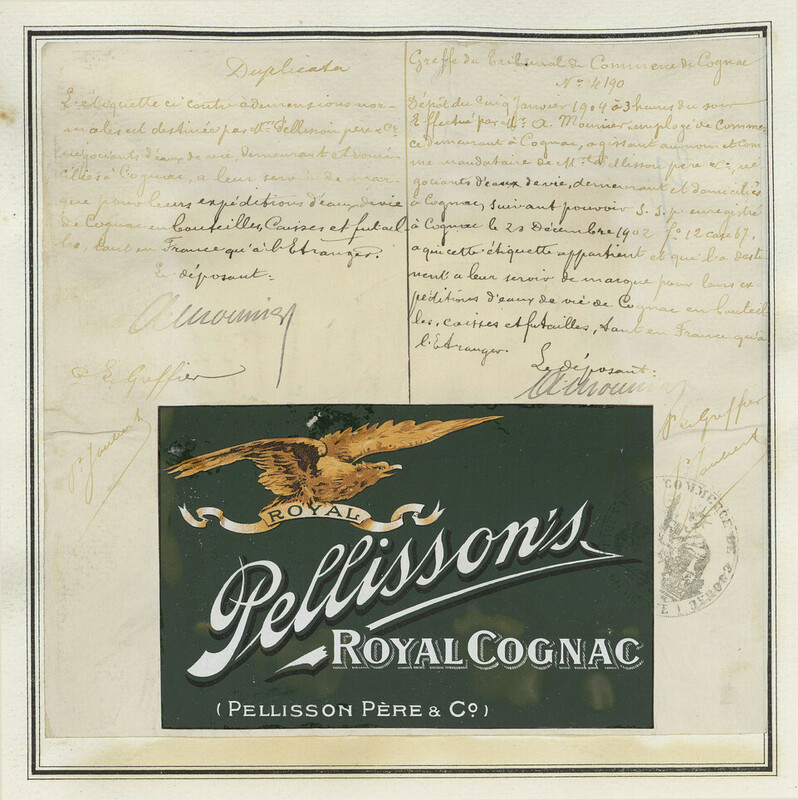 Duplicata
L'étiquette ci contre à dimensions nor-
males est destinée par Mrs Pellisson père & Cie
négociants d'eaux de vie, demeurant et domi
ciliés à Cognac, à leur servir de mar-
que pour leurs expéditions d'eaux de vie
de Cognac en bouteilles, caisses et futail
les, tant en France qu'à l'Etranger.
Le déposant:
A Mounier
P. Le Greffier
Greffe du Tribunal de Commerce de Cognac
No 4190
Dépôt du cinq Janvier 1904 à 3 heures du soir
Effectué par Mr A. Mounier, employé de Commer-
ce demeurant à Cognac, agissant au nom et com
me mandataire de Mrs Pellisson père & Cie, né
gociants d'eaux de vie, demeurant et domiciliés
à Cognac, suivant pouvoir S. S. p. enregistré
à Cognac le 23 Décembre 1902 Fo 12 case 67,
à qui cette étiquette appartient et qui l'a desti
nent à leur servir de marque pour leurs ex-
péditions d'eaux de vie de Cognac en bouteil
les, caisses et futailles, tant en France qu'à
l'Etranger.
Le déposant:
A Mounier
P. Le Greffier
ROYAL
Pellisson's
ROYAL COGNAC
(PELLISSON PÈRE & Co)
COMMERCE DE COGNAC